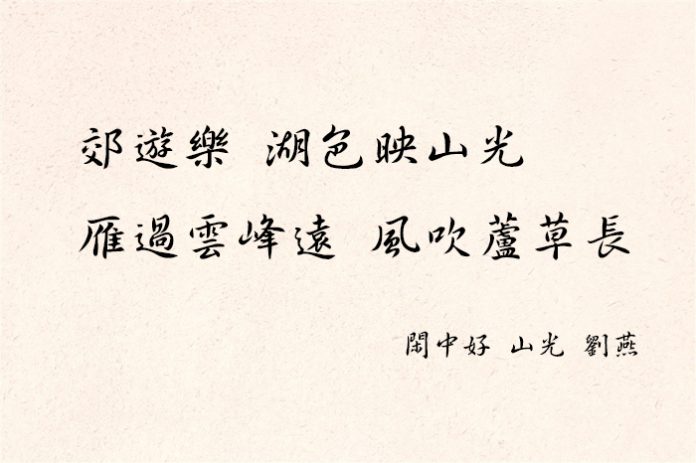 郊遊樂 湖色映山光
雁過雲峰遠 風吹蘆草長
閑中好 山光 劉燕